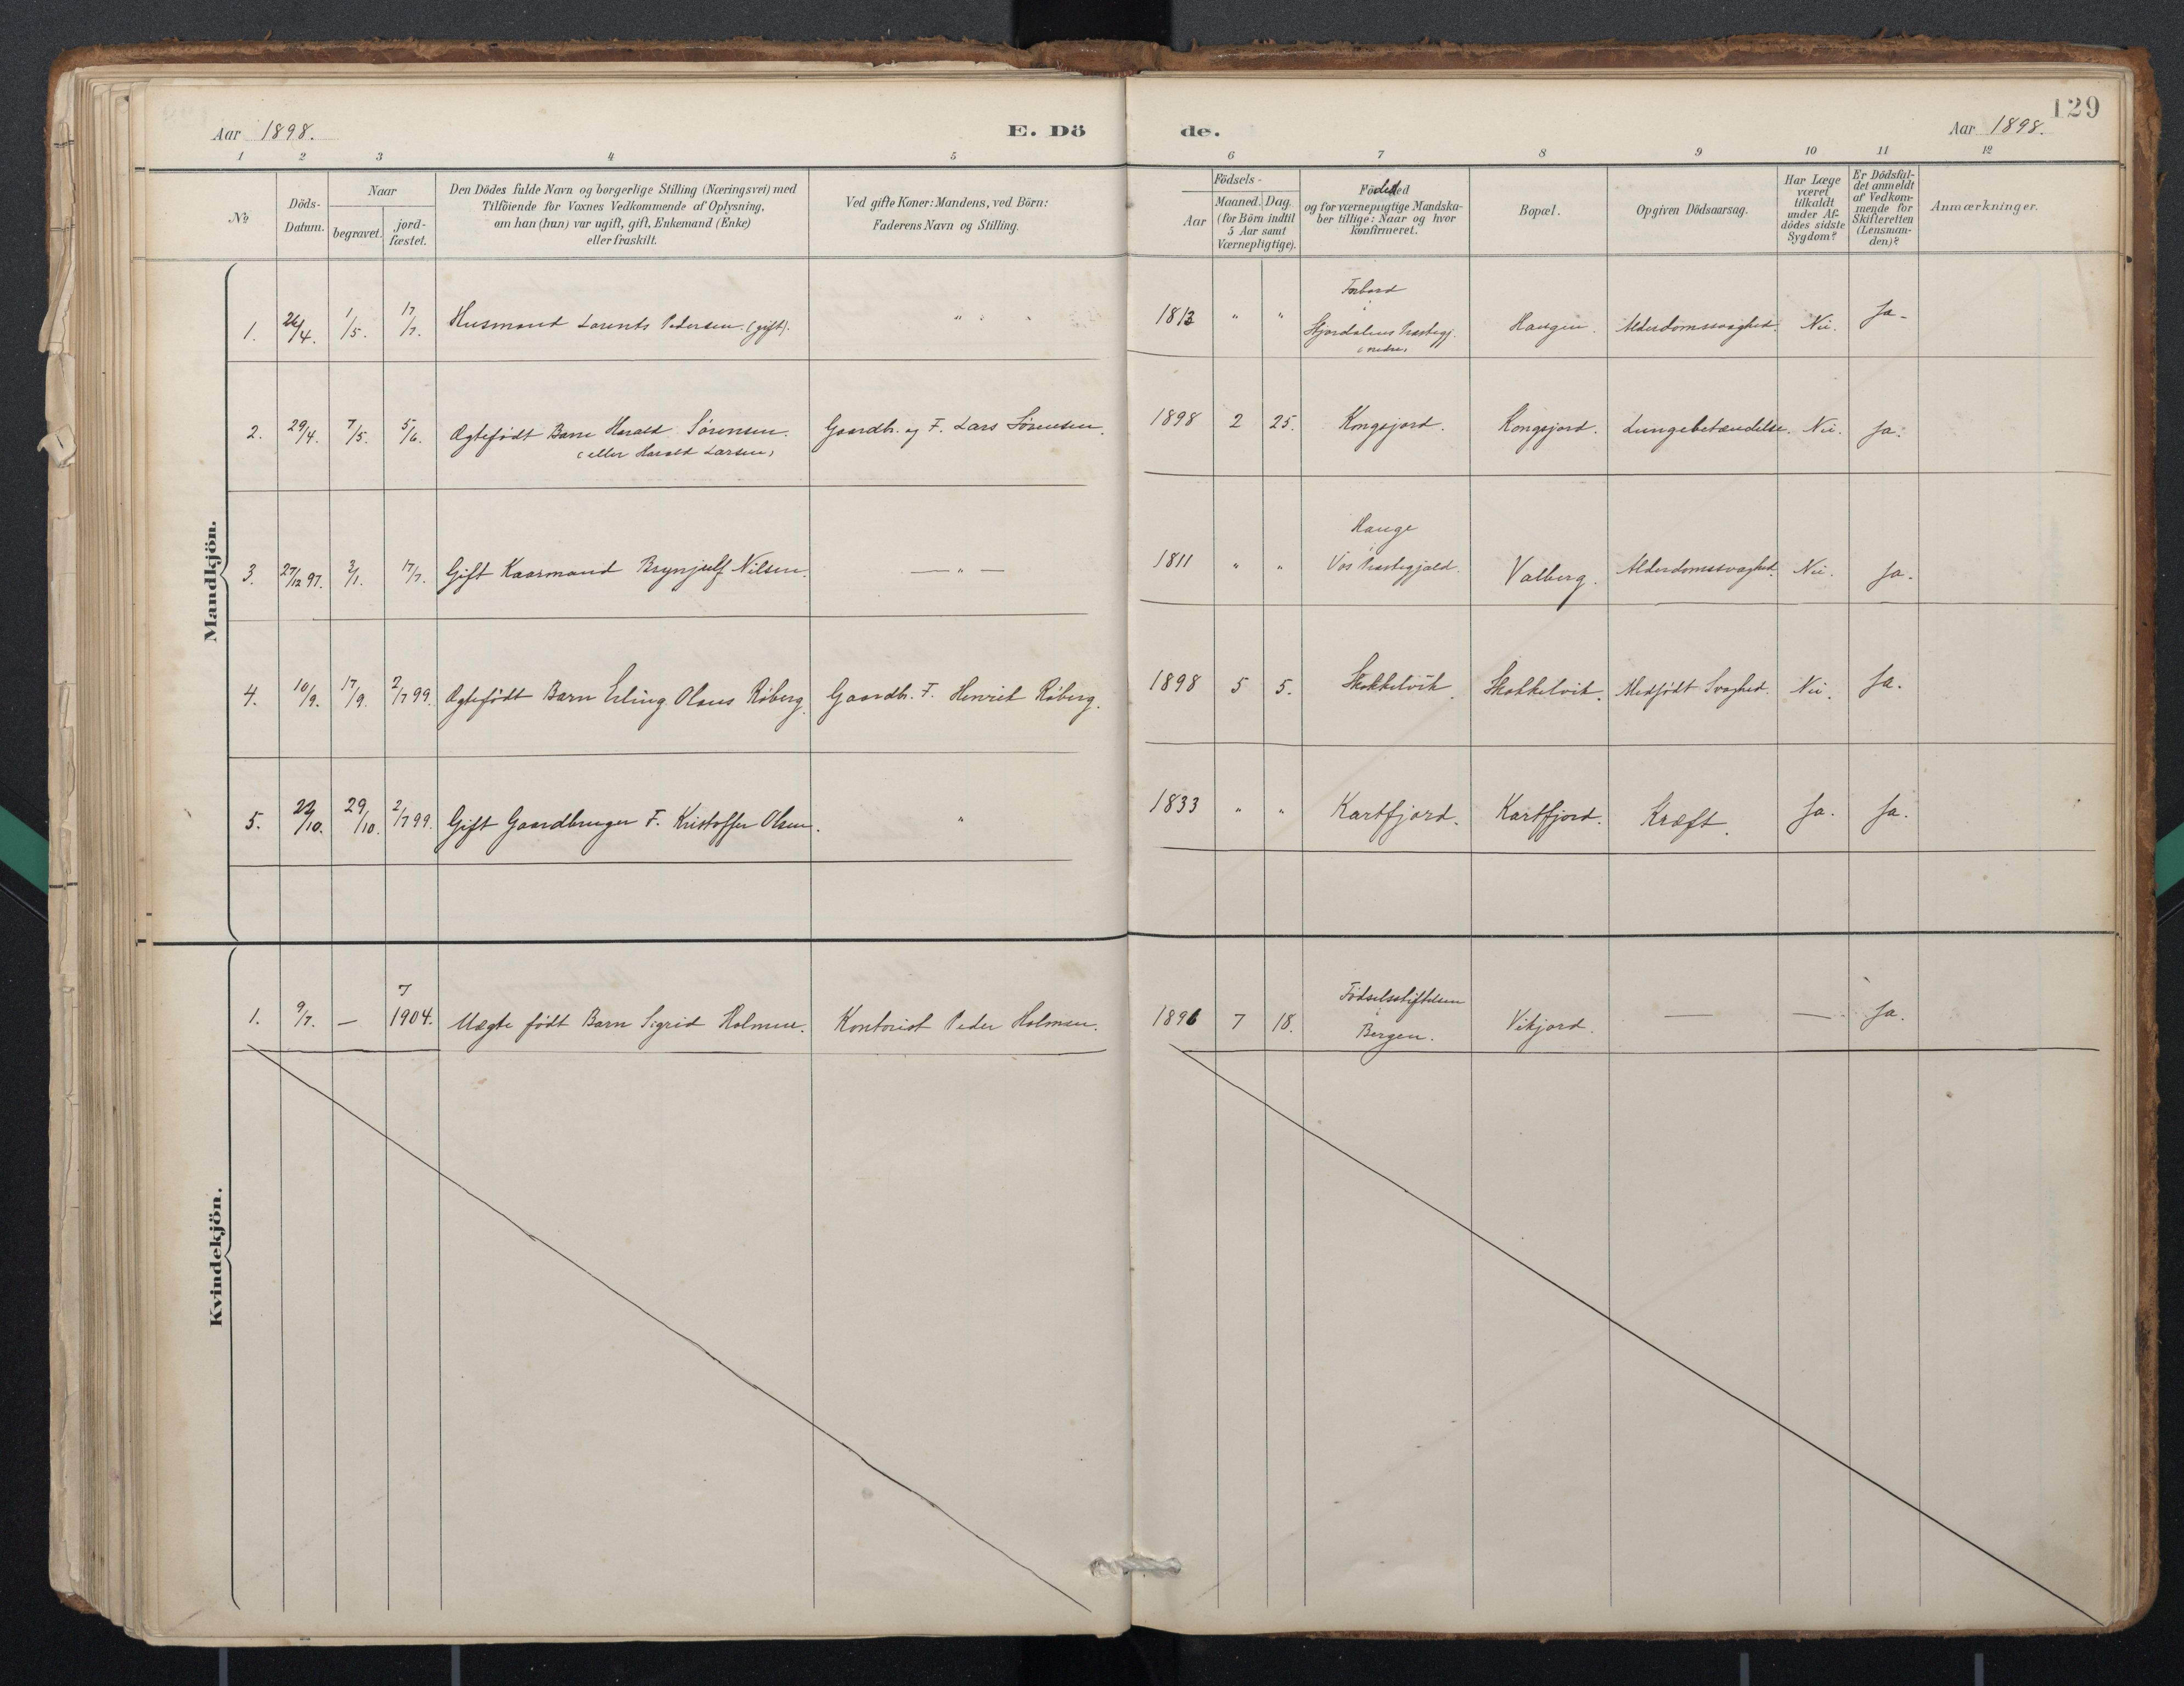 129
Aar 1898. E. Dö de. Aar 1898.
1 2 3 4 5 6 7 8 9 10 11 12
No
Döds-
Datum.
Naar
begravet.
jord-
fæstet.
Den Dödes fulde Navn og borgerlige Stilling (Næringsvei) med
Tilföiende for Voxnes Vedkommende af Oplysning,
om han (hun) var ugift, gift, Enkemand (Enke)
eller fraskilt.
Ved gifte Koner: Mandens, ved Börn:
Faderens Navn og Stilling.
Födsels-
Aar
Maaned. Dag.
(for Börn indtil
5 Aar samt
Værnepligtige).
Födested
og for værnepligtige Mandska-
ber tillige: Naar og hvor
konfirmeret.
Bopæl.
Opgiven Dödsaarsag.
Har Læge
været
tilkaldt
under Af-
dödes sidste
Sygdom?
Er Dödsfal-
det anmeldt
af Vedkom-
mende for
Skifteretten
(Lensman-
den)?
Anmærkninger.
Mandkjön.
1. 26/4. 1/5. 17/7. Husmand Lorents Pedersen. (gift). " 1813 " " Forbord i Stjordalens Præstegj. (nedre) Haugen. Alderdomssvaghed. Nei. Ja.
2. 29/4. 7/5. 5/6. Ægtefödt Barn Harald Sörensen. Gaardb. og F. Lars Sörensen. 1898 2 25. Kongsjord. Kongsjord. Lungebetændelse. Nei. Ja.
(eller Harald Larsen)
3. 27/12 97. 2/1. 17/7. Gift Kaarmand Brynjulf Nilsen. — " — 1811 " " Hauge i Vos Præstegjæld. Valberg. Alderdomssvaghed. Nei. Ja.
4. 10/9. 17/9. 2/7 99. Ægtefödt Barn Erling Olaus Röberg. Gaardb. F. Henrik Röberg. 1898 5 5. Skokkelvik. Skokkelvik. Medfödt Svaghed. Nei. Ja.
5. 22/10. 29/10. 2/7 99. Gift Gaardbruger F. Kristoffer Olsen. " 1833 " " Kartfjord. Kartfjord. Kræft. Ja. Ja.
Kvindekjön.
1. 9/7. — 7 1904. Uægte födt Barn Sigrid Holmen. Kontorist Peder Holmen. 1896 7 18. Födselsstiftelsen i Bergen. Vikjord. — — Ja.